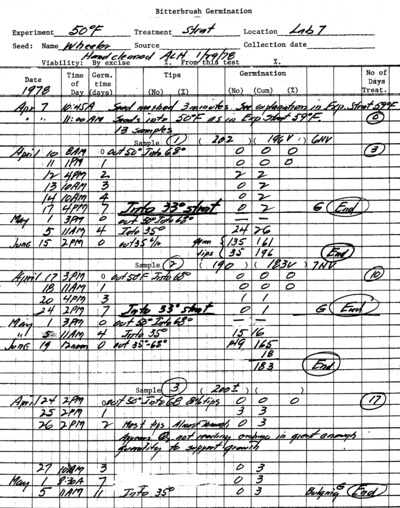 Bitterbrush Germination
Experiment 50°F Treatment Strat Location Lab 7
Seed: Name Wheeler Source Collection date
Hand cleaned ACM 1/29/78
Viability: By excise %. From this test %.
Date Time of Day Germ. time (days) Tips (No) (%) Germination (No) (Cum) (%) No of Days Treat.
1978
Apr 7 10:45A Seed washed 3 minutes. See explanation in Exp. Strat 59°F
" " 11:00AM Seeds into 50°F as in Exp Strat 59°F. 0
13 samples
Sample 1 ( 202 196V ) 6NV
April 10 8AM 0 out 50° Into 68° 0 0 0 3
11 1PM 1 0 0 0
12 4PM 2 2 2
13 10AM 3 0 2
14 10AM 4 0 2
17 4PM 7 Into 33° strat 0 2 G End
May 1 3PM 0 out 50° Into 68° — —
5 11AM 4 Into 35° 24 26
June 15 2PM 0 out 35° 135 161
tips 35 196 End
Sample 2 ( 190 183V ) 7NV
April 17 3PM 0 out 50°F Into 68° 0 0 0 10
18 11AM 1 0 0 0
20 4PM 3 1 1
24 2PM 7 Into 33° strat 0 1 G End
May 1 3PM 0 out 50° Into 68° — —
" 5 11AM 4 Into 35° 15 16
June 19 0 out 35°-68° 149 165
18
183 End
Sample 3 ( 200± ) ( )
April 24 2PM 0 out 50° Into 68 tips 0 0 0 17
25 2PM 1 3 3
26 2PM 2 Most tips 0 3
Appears not reaching embryo in great enough
quantity to support growth
27 10AM 3 0 3
May 1 8:30A 7 0 3
5 11AM 11 Into 35° 0 3 Bulging G End